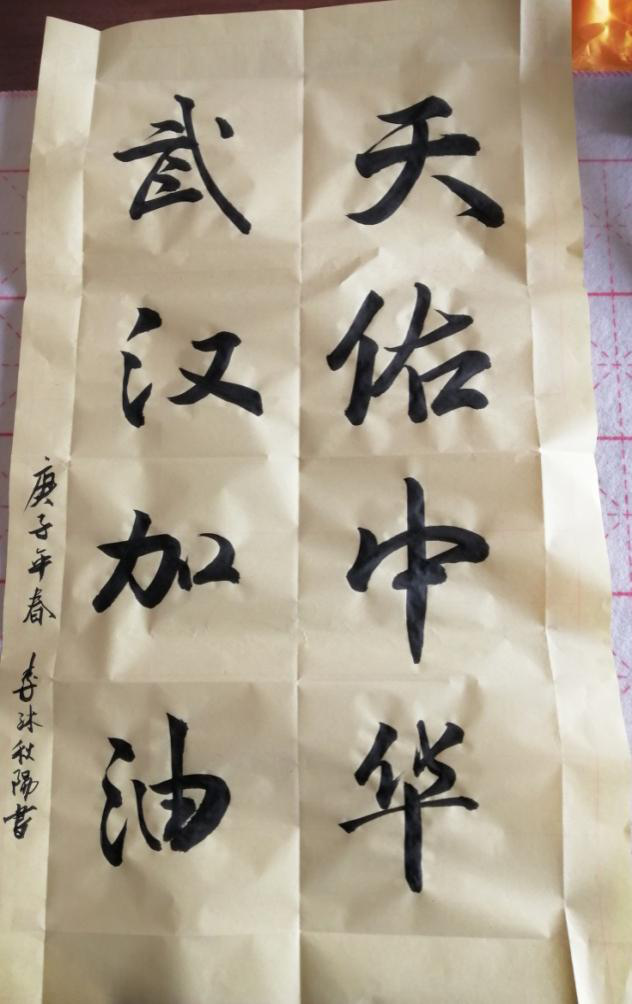 天佑中华
武汉加油
庚子年春 李沐秋阳书